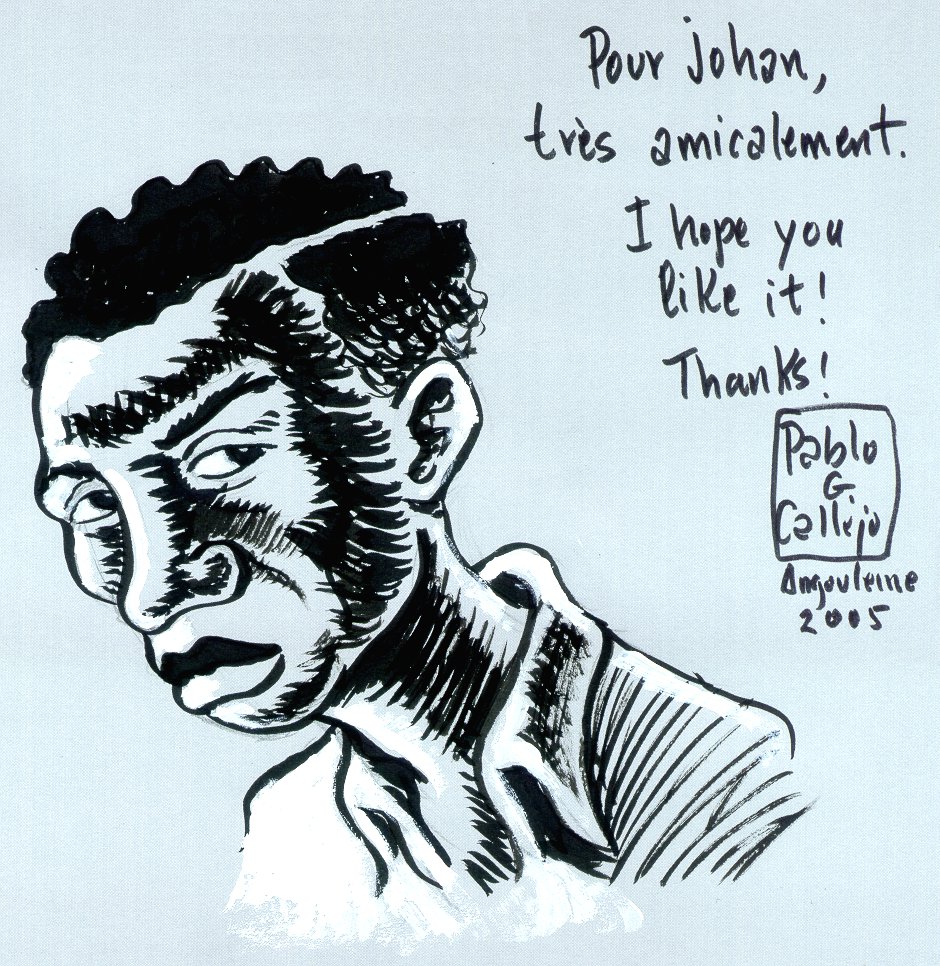 Pour Johan,
très amicalement.
I hope you
like it!
Thanks!
Pablo
G
Callejo
Angouleme
2005